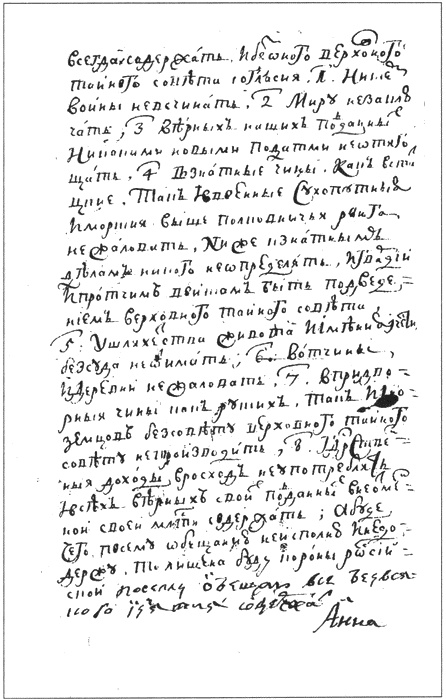 всегда содержать, и без оного верховного
тайного совета согласия, 1. Ни с кем
войны не всчинать, 2 Миру не заклю
чать, 3 верных наших подданных
никакими новыми податми не отяго
щать, 4 В знатные чины, как в стат
цкие, так и в военные сухопутные
и морские выше полковничья ранга
не жаловать, ниже к знатным
делам никого не определять, и гвардии
и протчим войскам быть под веде=
нием верховного тайного совета
5. У шляхетства живота и имения и чести
без суда не отимать, 6. вотчины,
и деревни не жаловать, 7. в придво=
рныя чины как руских, так и ино
земцов без совету верховного тайного
совету не производить, 8. Государстве=
ныя доходы в росход не употреблять
и всех верных своих подданных в неотме=
ной своей милости содержать; А буде
чего по сему обещанию не исполню и не до=
держу, то лишена буду короны росий=
ской по сему обещаю все без вся=
кого изъятия содержать
Анна